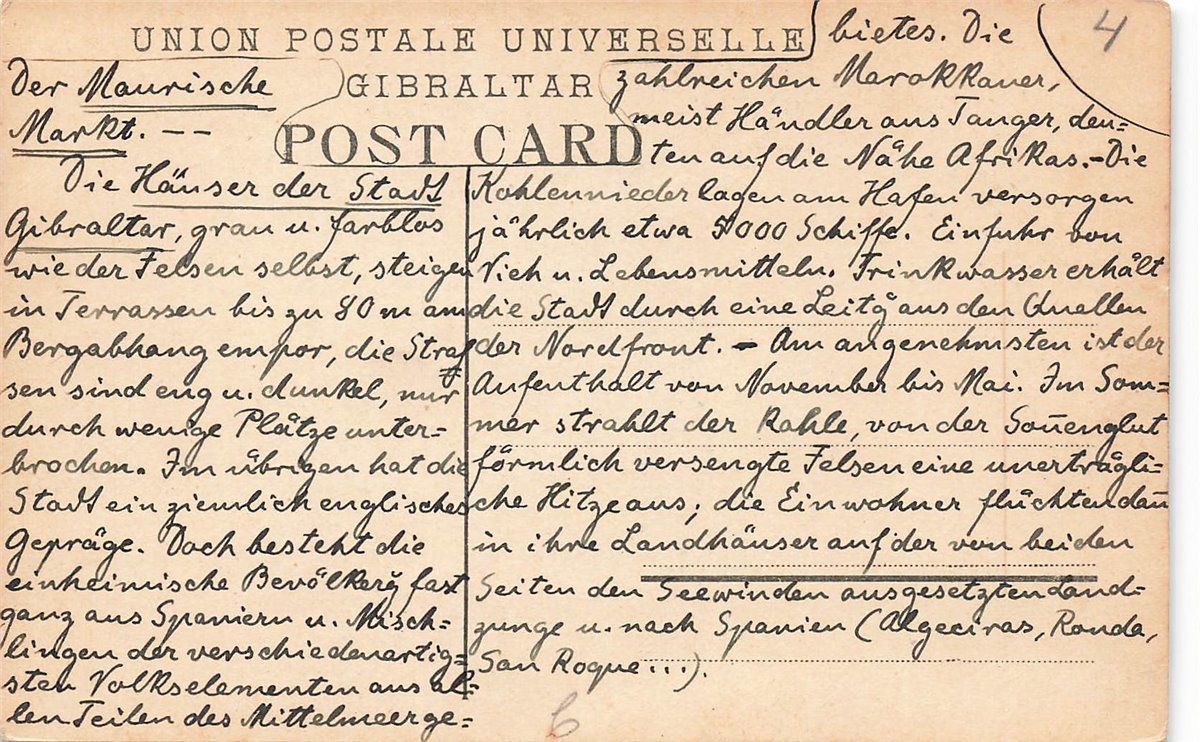 UNION POSTALE UNIVERSELLE
GIBRALTAR
POST CARD
4
Der Maurische
Markt. — —
Die Häuser der Stadt
Gibraltar, grau u. farblos
wie der Felsen selbst, steigen
in Terrassen bis zu 80 m am
Bergabhang empor, die Straf
sen sind eng u. dunkel, nur
durch wenige Plätze unter=
brochen. Im übrigen hat die
Stadt ein ziemlich englisches
Gepräge. Doch besteht die
einheimische Bevölkerg̃ fast
ganz aus Spaniern u. Misch=
lingen der verschiedenartig=
sten Volkselementen aus al=
len Teilen des Mittelmeerge=
bietes. Die
zahlreichen Marokkaner,
meist Händler aus Tanger, deu=
ten auf die Nähe Afrikas. – Die
Kohlenniederlagen am Hafen versorgen
jährlich etwa 5000 Schiffe. Einfuhr von
Vieh u. Lebensmitteln. Trinkwasser erhält
die Stadt durch eine Leitg̃ aus den Quellen
der Nordfront. – Am angenehmsten ist der
Aufenthalt von November bis Mai. Im Som=
mer strahlt der Kahle, von der Son̄englut
förmlich versengte Felsen eine unerträgli=
che Hitze aus; die Einwohner flüchten dan̄
in ihre Landhäuser auf der von beiden
Seiten den Seewinden ausgesetzten Land=
zunge u. nach Spanien (Algeciras, Ronda,
San Roque...).
6